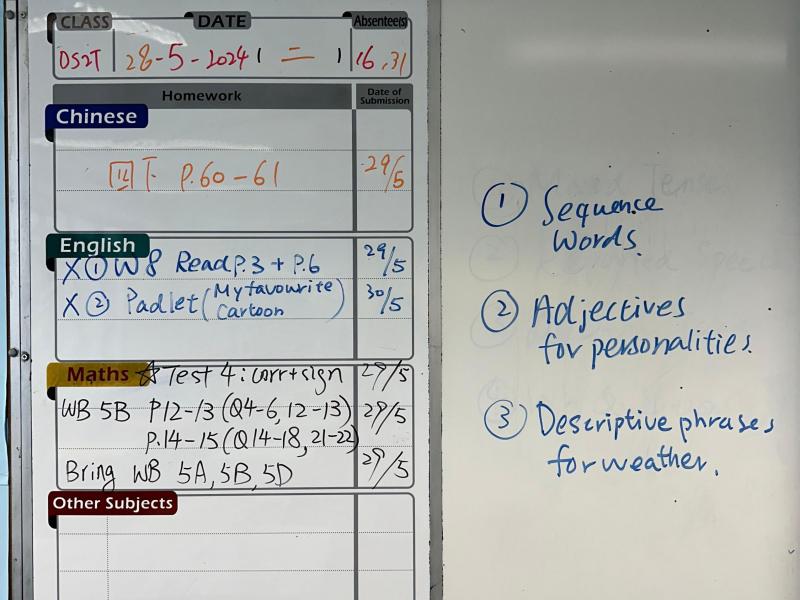 CLASS DATE Absentee(s)
DS2T 28-5-2024 ( 二 ) 16,31
Homework Date of Submission
Chinese
P.60-61 29/5
English
X ① W8 Read P.3 + P.6 29/5
X ② Padlet (My favourite Cartoon) 30/5
Maths ☆ Test 4: corr+sign 29/5
WB 5B P12-13 (Q4-6, 12-13) 29/5
P.14-15 (Q14-18, 21-22)
Bring WB 5A, 5B, 5D 29/5
Other Subjects
① Sequence
Words.
② Adjectives
for personalities.
③ Descriptive phrases
for weather.